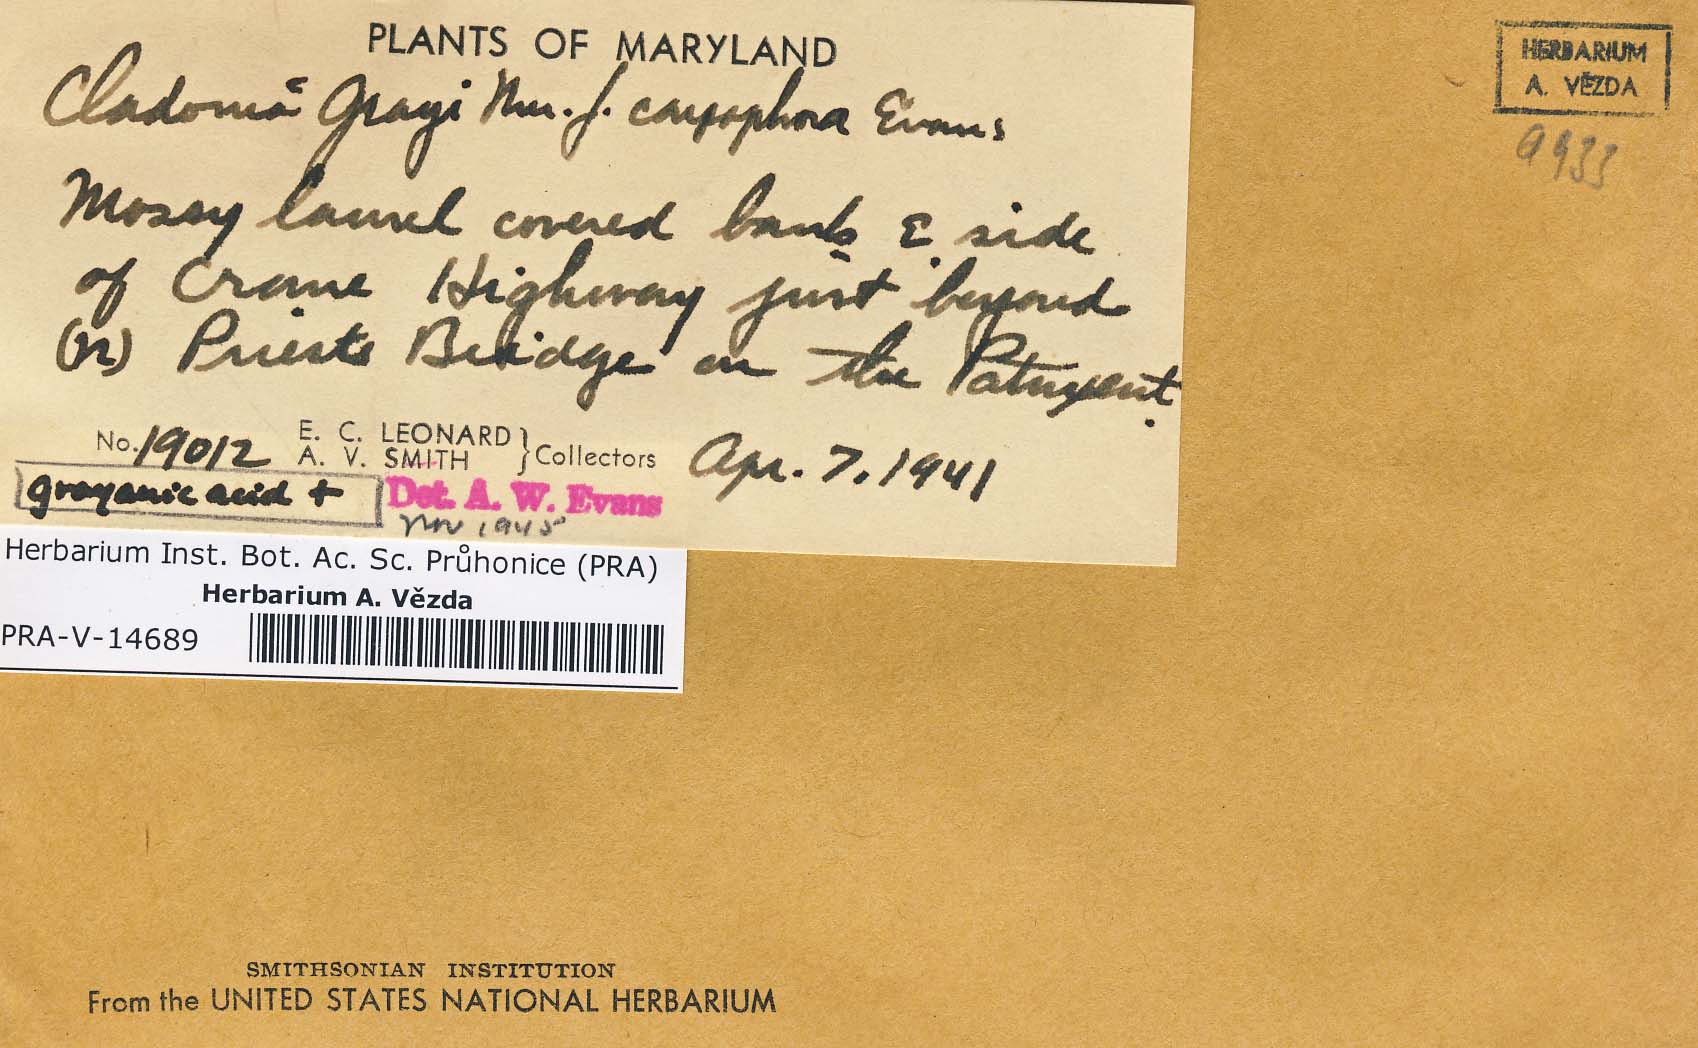 PLANTS OF MARYLAND
Cladonia Grayi Mer. f. carpophora Evans
Mossy laurel covered bank & side
of Crane Highway just beyond
(n) Priests Bridge on the Patuxent.
No. 19012 E. C. LEONARD
A. V. SMITH } Collectors Apr. 7, 1941
grayanic acid + Det. A. W. Evans
Nov 1945
Herbarium Inst. Bot. Ac. Sc. Průhonice (PRA)
Herbarium A. Vězda
PRA-V-14689
HERBARIUM
A. VĚZDA
9933
SMITHSONIAN INSTITUTION
From the UNITED STATES NATIONAL HERBARIUM